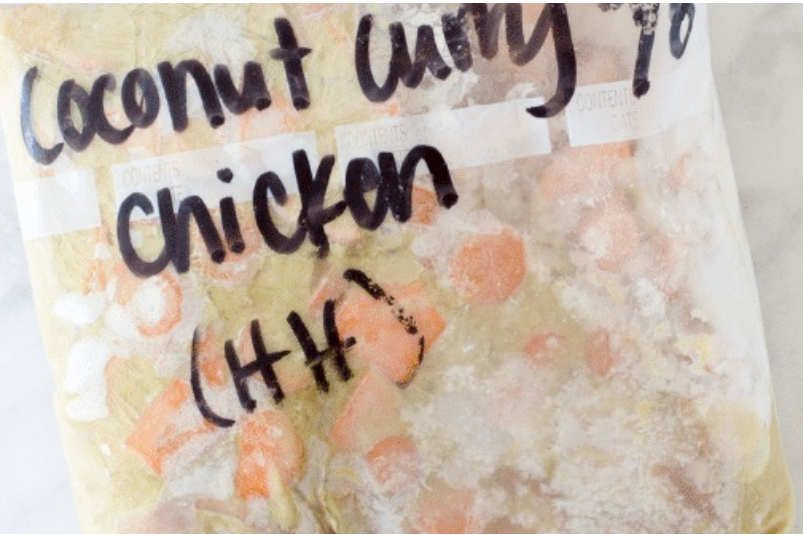 Coconut Curry
CONTENTS
CONTENTS
CONTENTS
DATE
chicken
(HH)